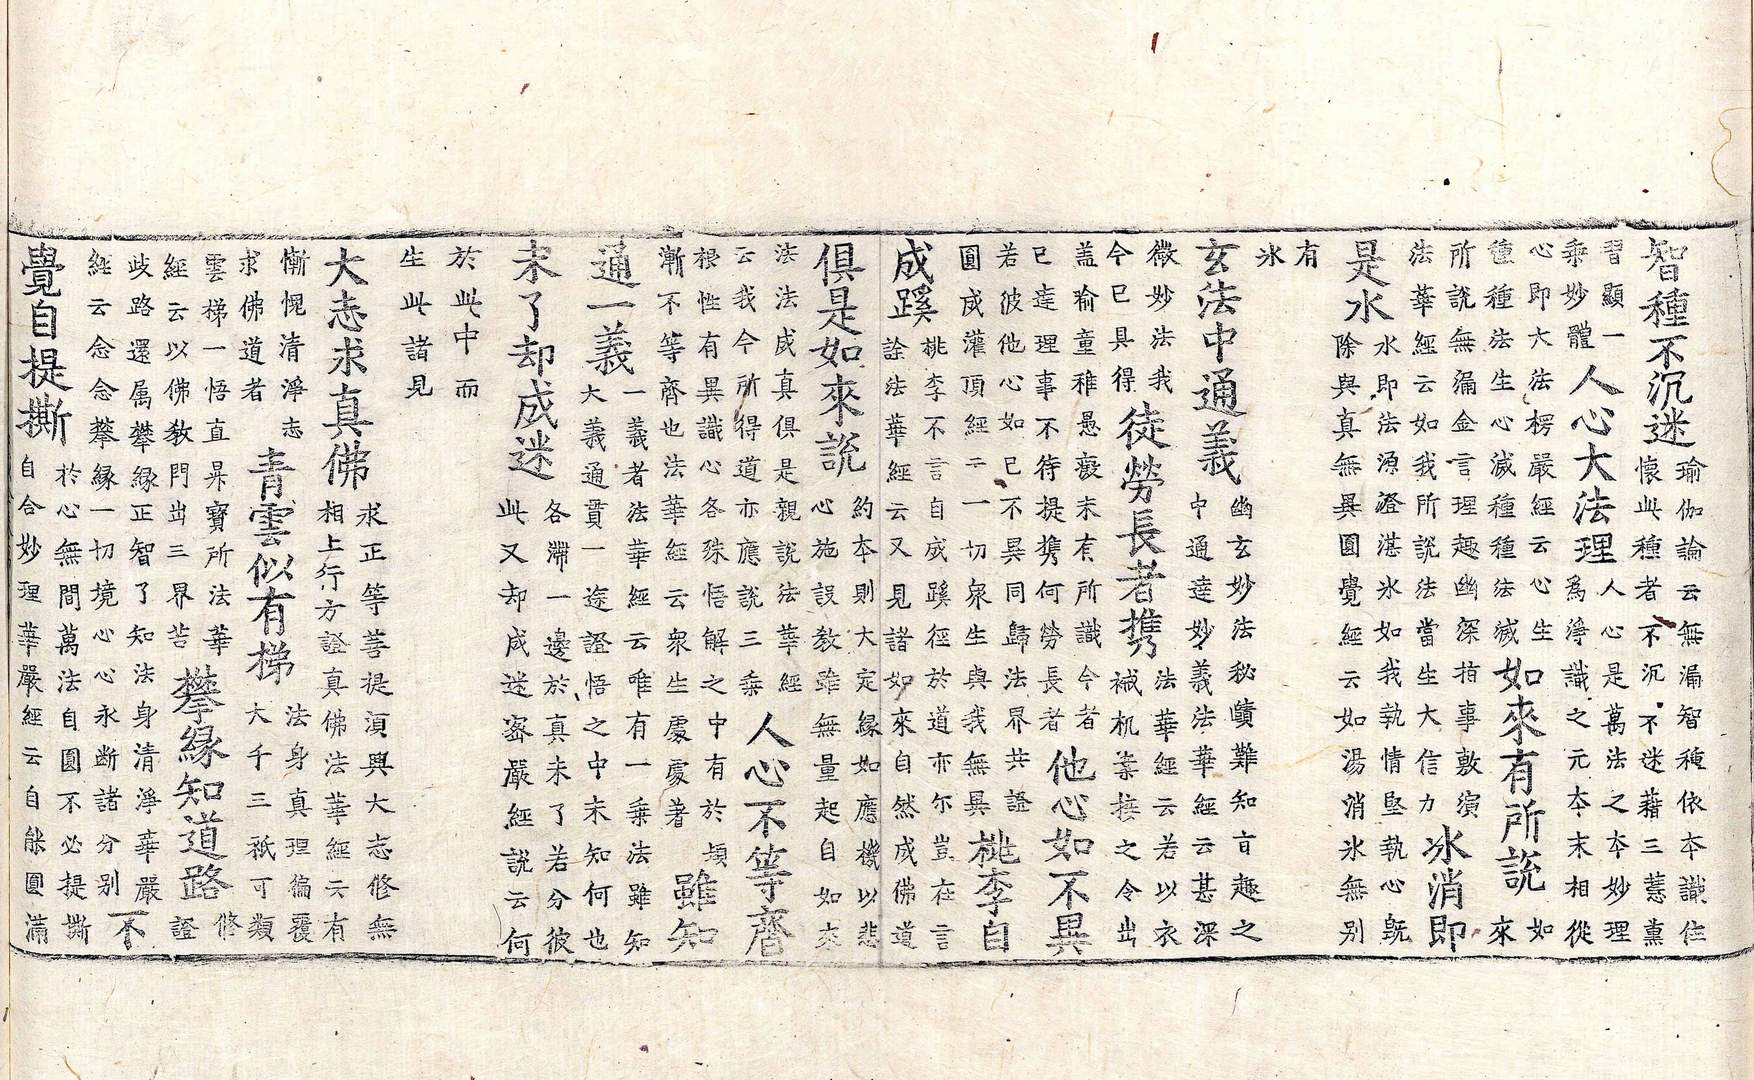 智種不沉迷
瑜伽論云無漏智種依本識住
懷此種者不沉不迷藉三慧薰
習顯一
乘妙體
人心大法理
人心是萬法之本妙理
為淨識之元本末相從
心即大法楞嚴經云心生
種種法生心滅種種法滅
如來有所說
如
來
所說無漏金言理趣幽深栢事敷演
法華經云如我所說法當生大信力
冰消即
是水
水即法源澄湛氷如我執情堅執心既
除與真無異圓覺經云如湯消氷無別
有
氷
玄法中通義
幽玄妙法秘賾難知盲趣之
中通達妙義法華經云甚深
微妙法我
今已具得
徒勞長者携
法華經云若以衣
裓机案接之令出
蓋喻童稚愚癡未有所識今者
已達理事不待提携何勞長者
他心如不異
若彼他心如已不異同歸法界共證
圓成灌頂經云一切衆生與我無異
桃李自
成蹊
桃李不言自成蹊徑於道亦尒豈在言
詮法華經云又見諸如來自然成佛道
俱是如來說
約本則大定緣如應機以悲
心施設教雖無量起自如來
法法成真俱是親說法華經
云我今所得道亦應說三乘
人心不等齊
根性有異識心各殊悟解之中有於頓
漸不等齊也法華經云衆生處處著
雖知
通一義
一義者法華經云唯有一乘法雖知
大義通貫一途證悟之中未知何也
未了却成迷
各滯一邊於真未了若分彼
此又却成迷密嚴經說云何
於此中而
生此諸見
大志求真佛
求正等菩提湏興大志修無
相上行方證真佛法華經云有
慚愧清淨志
求佛道者
青雲似有梯
法身真理徧覆
大千三祇可類
雲梯一悟直昇寶所法華
經云以佛教門出三界苦
攀緣知道路
修
證
歧路還属攀緣正智了知法身清淨華嚴
經云念念攀緣一切境心心永斷諸分別
不
覺自提撕
於心無間萬法自圓不必提撕
自合妙理華嚴經云自能圓滿